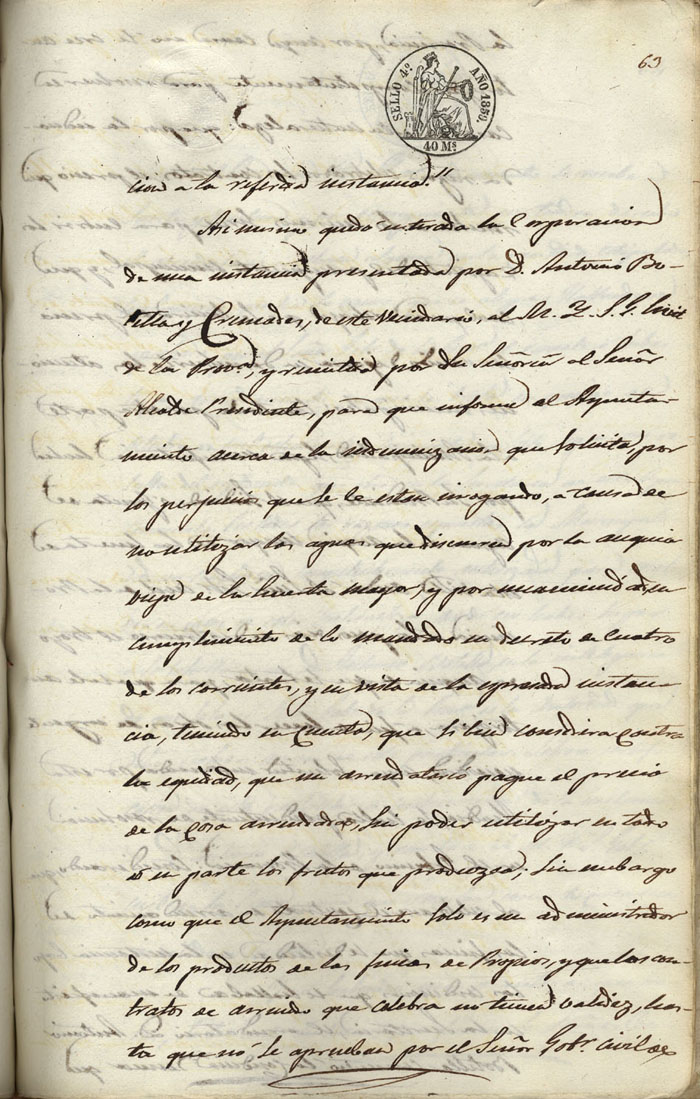 63
SELLO 4º AÑO 1859.
40 Ms
cion a la referida instancia."
Asi mismo quedo enterada la Corporacion
de una instancia presentada por D. Antonio Bo-
tella y Cremades, de este vecindario, al M. Y. S. G. Civil
de la Prova, y remitida por Su Señoria al Señor
Alcalde Presidente, para que informe el Ayunta-
miento acerca de la indemnizacion que solicita, por
los perjuicios que se le estan irrogando, a causa de
no utilizar las aguas que discurren por la acequia
vieja de la huerta mayor, y por unanimidad, en
cumplimiento de lo mandado en decreto de cuatro
de los corrientes, y en vista de la espresada instan-
cia, teniendo en cuenta, que si bien considera contra
la equidad, que un arrendatario pague el precio
de la cosa arrendada, sin poder utilizar en todo
o en parte los frutos que produzca; sin embargo
como que el Ayuntamiento solo es un administrador
de los productos de las fincas de Propios, y que los con-
tratos de arriendo que celebra no tienen validez, has-
ta que no se aprueban por el Señor Gobr. Civil de